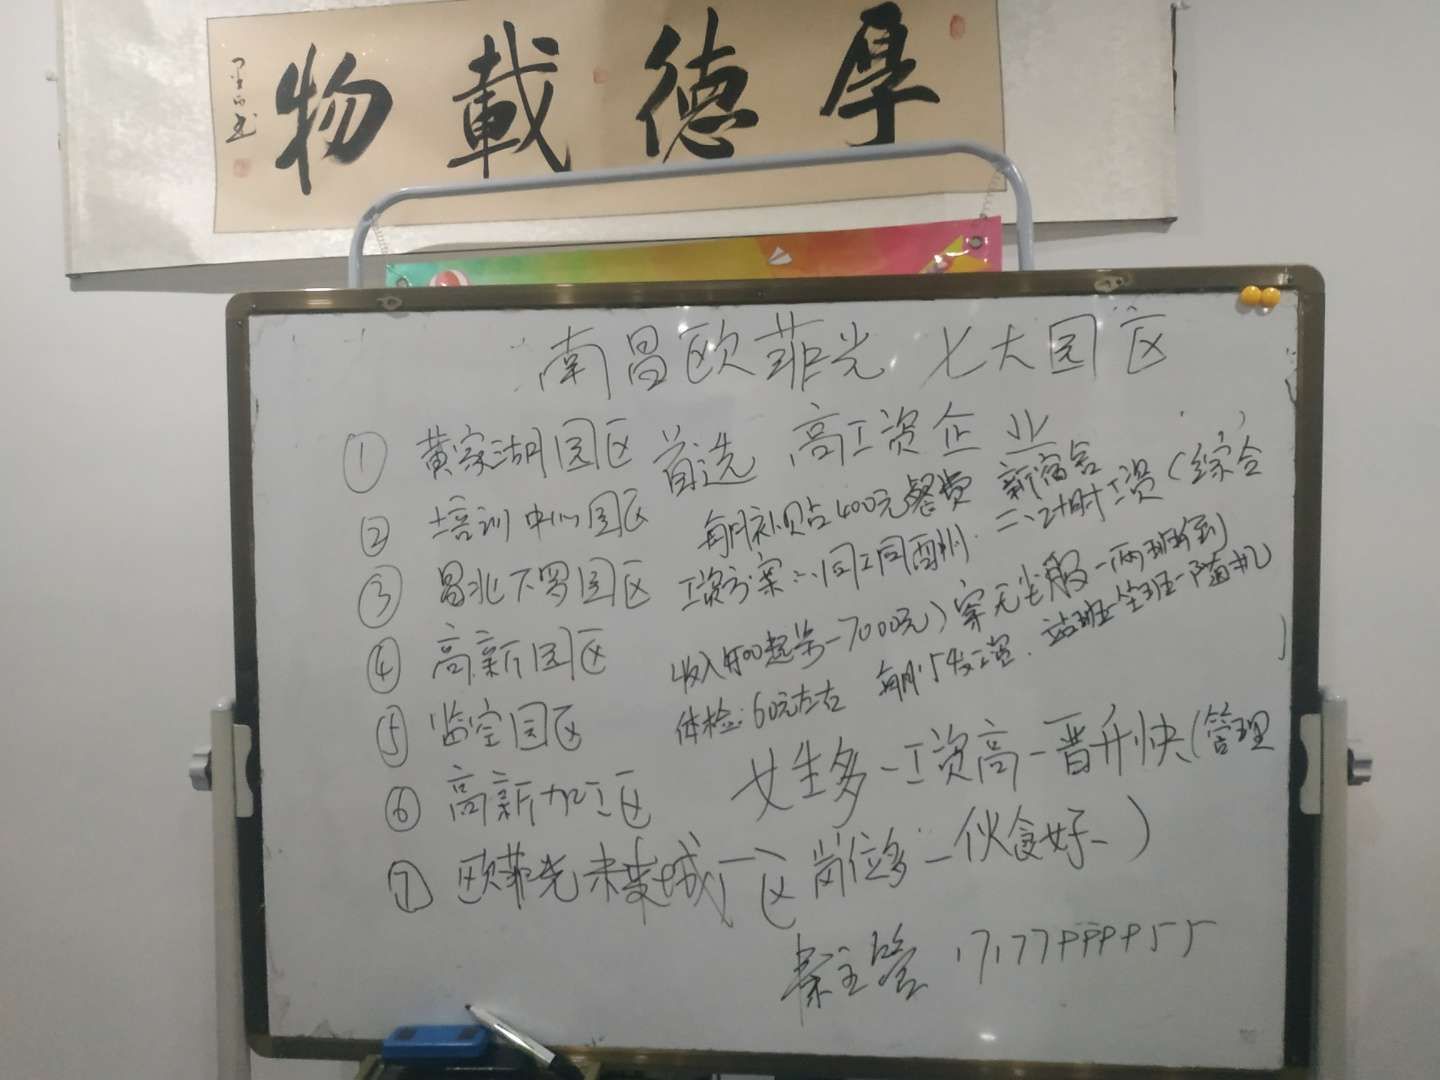 厚德載物
南昌欧菲光 七大园区
① 黄家湖园区
② 培训中心园区
③ 昌北下罗园区
④ 高新园区
⑤ 临空园区
⑥ 高新加工区
⑦ 欧菲光未来城厂区
首选 高工资企业
每月补贴400元餐费 新宿舍
工资方案:同工同酬. 二、计时工资(综合
收入4500起步-7000元)穿无尘服-两班倒
体检:60元左右 每月15号发工资. 站班-坐班-随机
女生多-工资高-晋升快(管理
岗位多-伙食好-)
秦主管